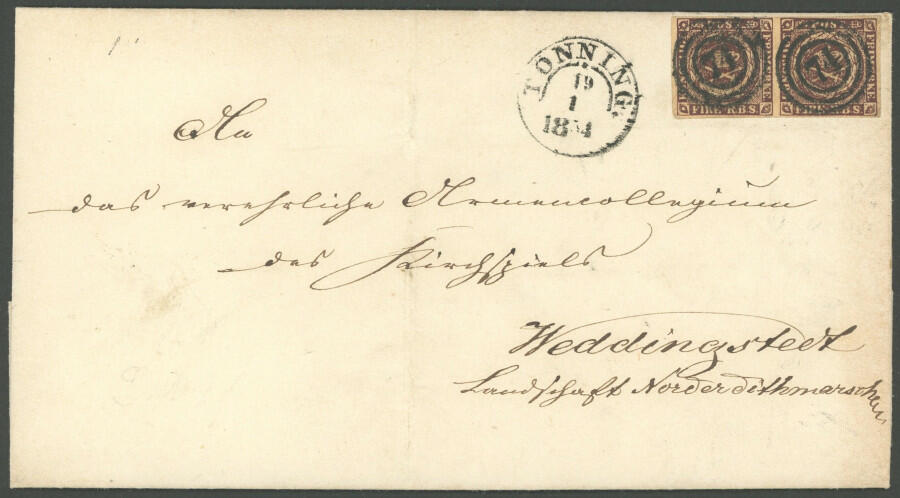 TÖNNING.
19
1
1854
74
74
FIRE R.B.S.
FIRE R.B.S.
An
das verehrliche Armencollegium
des Kirchspiels
Weddingstedt
Landschaft Norderdithmarschen